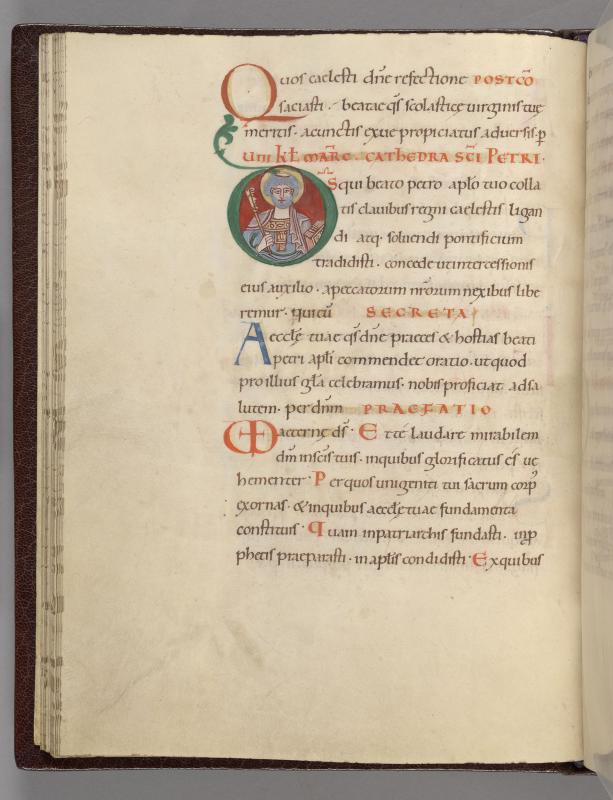 Quos caelesti dñe refectione POSTCÕ
saciasti · beatae qs̃ scolasticę uirginis tuę
meritis · a cunctis exue propiciatus aduersis · p̱
UIII KŁ MARC · CATHEDRA SC̃I PETRI ·
Ds̃ qui beato petro apło tuo colla
tis clauibus regni caelestis ligan
di atq· soluendi pontificium
tradidisti · concede ut intercessionis
eius auxilio · a peccatorum nr̃orum nexibus libe
remur · qui cũ SECRETA
Aeccłę tuae qs̃ dñe praeces & hostias beati
petri apłi commendet oratio · ut quod
pro illius gła celebramus · nobis proficiat ad sa
lutem · per dñm PRAEFATIO
aeternę ds̃ · Et té laudare mirabilem
dm̃ in sc̃is tuis · in quibus glorificatus és ue
hementer · Per quos unigeniti tui sacrum corp᾿
exornas · & in quibus aeccłę tuae fundamenta
constituis · Quam in patriarchis fundasti · in p̱
phetis praeparasti · in apłis condidisti · Ex quibus